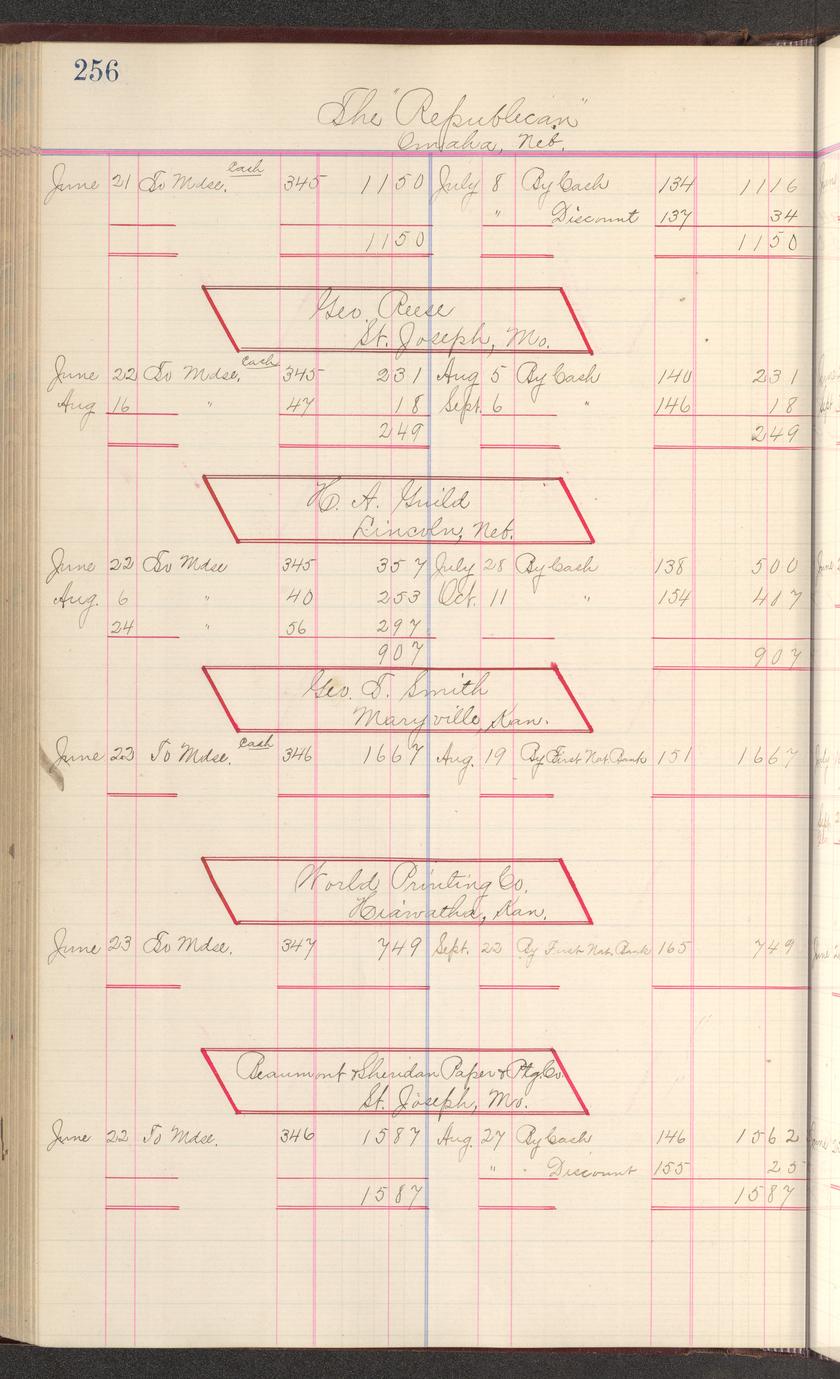 256
The "Republican"
Omaha, Neb.
June 21 To Mdse. Cash 345 1150 July 8 By Cash 134 1116
" Discount 137 34
1150 1150
Geo. Reese
St. Joseph, Mo.
June 22 To Mdse. Cash 345 231 Aug 5 By Cash 140 231
Aug 16 " 47 18 Sept. 6 " 146 18
249 249
H. A. Guild
Lincoln, Neb.
June 22 To Mdse 345 357 July 28 By Cash 138 500
Aug. 6 " 40 253 Oct. 11 " 154 407
24 " 56 297
907 907
Geo. T. Smith
Maryville, Kan.
June 23 To Mdse. Cash 346 1667 Aug. 19 By First Nat. Bank 151 1667
World Printing Co.
Hiawatha, Kan.
June 23 To Mdse. 347 749 Sept. 22 By First Nat. Bank 165 749
Beaumont & Sheridan Paper & Ptg. Co.
St. Joseph, Mo.
June 22 To Mdse. 346 1587 Aug. 27 By Cash 146 1562
" Discount 155 25
1587 1587